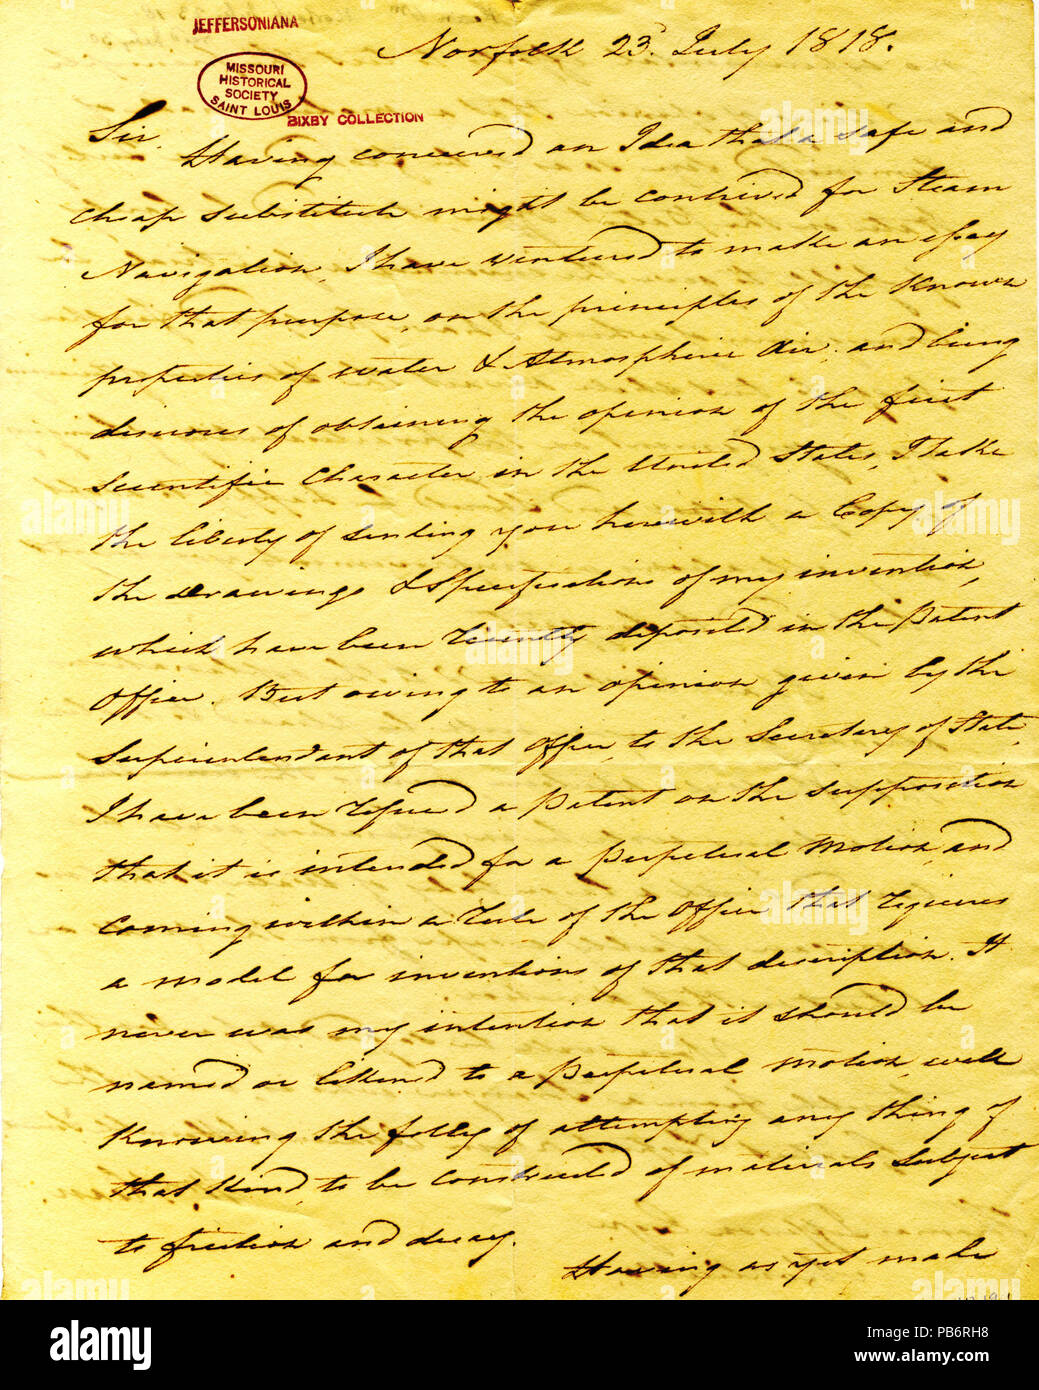 JEFFERSONIANA
MISSOURI
HISTORICAL
SOCIETY
SAINT LOUIS
BIXBY COLLECTION
Norfolk 23d July 1818.
Sir,
Having conceived an Idea that a safe and
cheap substitute might be contrived for Steam
Navigation, I have ventured to make an essay
for that purpose, on the principles of the known
properties of water & Atmospheric Air. and being
desirous of obtaining the opinion of the first
Scientific Character in the United States, I take
the liberty of sending you herewith a Copy of
the Drawings & Specifications of my invention,
which have been recently deposited in the Patent
Office. But owing to an opinion given by the
Superintendant of that Office, to the Secretary of State,
I have been refused a Patent on the supposition
that it is intended for a perpetual Motion, and
coming within a rule of the Office that requires
a model for inventions of that description. It
never was my intention that it should be
named or likened to a perpetual motion, well
knowing the folly of attempting any thing of
that kind, to be constructed of materials subject
to friction and decay.
Having as yet made
alamy
PB6RH8
www.alamy.com